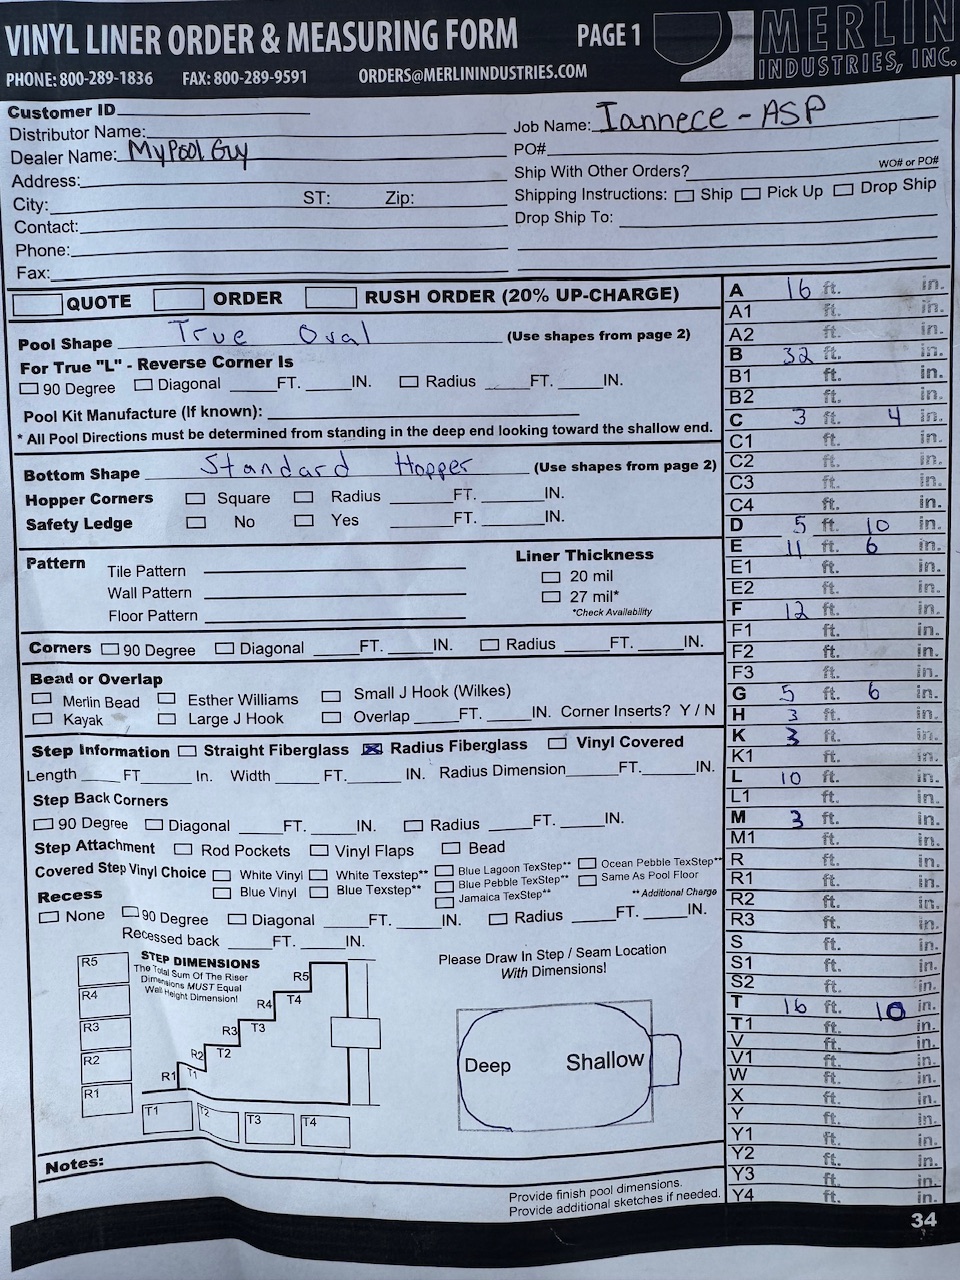 VINYL LINER ORDER & MEASURING FORM PAGE 1 MERLIN INDUSTRIES, INC.
PHONE: 800-289-1836 FAX: 800-289-9591 ORDERS@MERLININDUSTRIES.COM
Customer ID
Distributor Name:
Dealer Name: MyPool Guy
Address:
City: ST: Zip:
Contact:
Phone:
Fax:
Job Name: Iannece - ASP
PO#
Ship With Other Orders? WO# or PO#
Shipping Instructions: Ship Pick Up Drop Ship
Drop Ship To:
QUOTE ORDER RUSH ORDER (20% UP-CHARGE)
Pool Shape True Oval (Use shapes from page 2)
For True "L" - Reverse Corner Is
90 Degree Diagonal FT. IN. Radius FT. IN.
Pool Kit Manufacture (If known):
* All Pool Directions must be determined from standing in the deep end looking toward the shallow end.
Bottom Shape Standard Hopper (Use shapes from page 2)
Hopper Corners Square Radius FT. IN.
Safety Ledge No Yes FT. IN.
Pattern
Tile Pattern
Wall Pattern
Floor Pattern
Liner Thickness
20 mil
27 mil*
*Check Availability
Corners 90 Degree Diagonal FT. IN. Radius FT. IN.
Bead or Overlap
Merlin Bead Esther Williams Small J Hook (Wilkes)
Kayak Large J Hook Overlap FT. IN. Corner Inserts? Y / N
Step Information Straight Fiberglass Radius Fiberglass Vinyl Covered
Length FT In. Width FT. IN. Radius Dimension FT. IN.
Step Back Corners
90 Degree Diagonal FT. IN. Radius FT. IN.
Step Attachment Rod Pockets Vinyl Flaps Bead
Covered Step Vinyl Choice White Vinyl White Texstep** Blue Lagoon TexStep** Ocean Pebble TexStep**
Blue Vinyl Blue Texstep** Blue Pebble TexStep** Same As Pool Floor
Jamaica TexStep** ** Additional Charge
Recess
None 90 Degree Diagonal FT. IN. Radius FT. IN.
Recessed back FT. IN.
STEP DIMENSIONS
The Total Sum Of The Riser
Dimensions MUST Equal
Wall Height Dimension!
R5
R4
R3
R2
R1
R5
R4 T4
R3 T3
R2 T2
R1 T1
T1 T2 T3 T4
Please Draw In Step / Seam Location
With Dimensions!
Deep Shallow
Notes:
Provide finish pool dimensions.
Provide additional sketches if needed.
A 16 ft. in.
A1 ft. in.
A2 ft. in.
B 32 ft. in.
B1 ft. in.
B2 ft. in.
C 3 ft. 4 in.
C1 ft. in.
C2 ft. in.
C3 ft. in.
C4 ft. in.
D 5 ft. 10 in.
E 11 ft. 6 in.
E1 ft. in.
E2 ft. in.
F 12 ft. in.
F1 ft. in.
F2 ft. in.
F3 ft. in.
G 5 ft. 6 in.
H 3 ft. in.
K 3 ft. in.
K1 ft. in.
L 10 ft. in.
L1 ft. in.
M 3 ft. in.
M1 ft. in.
R ft. in.
R1 ft. in.
R2 ft. in.
R3 ft. in.
S ft. in.
S1 ft. in.
S2 ft. in.
T 16 ft. 10 in.
T1 ft. in.
V ft. in.
V1 ft. in.
W ft. in.
X ft. in.
Y ft. in.
Y1 ft. in.
Y2 ft. in.
Y3 ft. in.
Y4 ft. in.
34